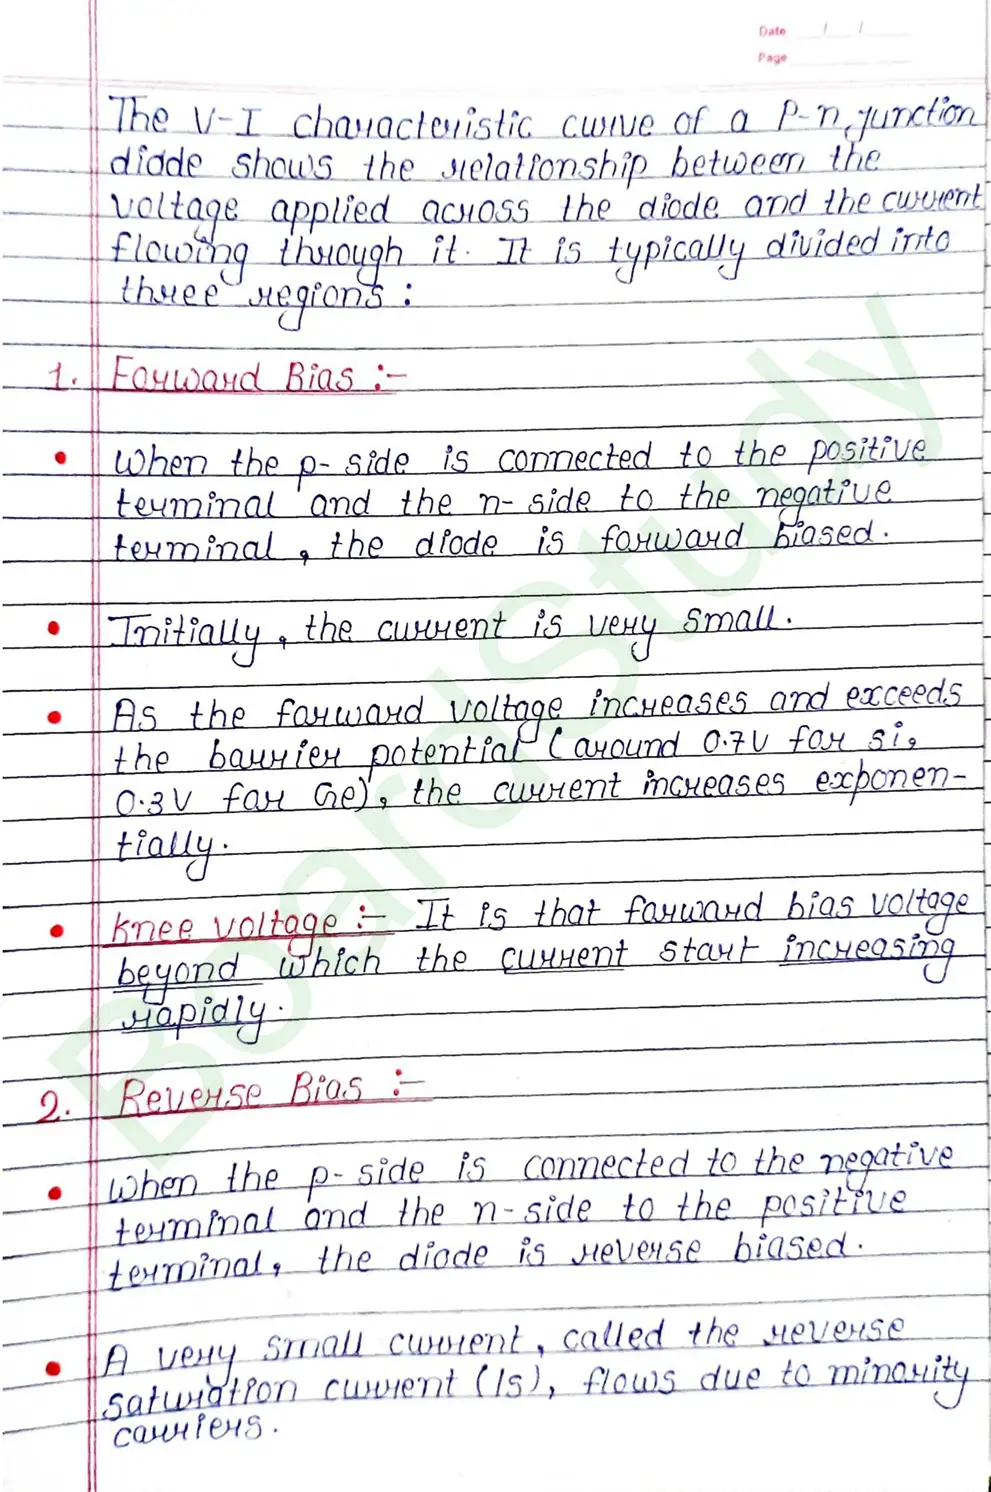 Date / /
Page
The V-I characteristic curve of a P-n junction
diode shows the relationship between the
voltage applied across the diode and the current
flowing through it. It is typically divided into
three regions :
1. Forward Bias :-
• When the p-side is connected to the positive
terminal and the n-side to the negative
terminal, the diode is forward biased.
• Initially, the current is very small.
• As the forward voltage increases and exceeds
the barrier potential (around 0.7V for si,
0.3V for Ge), the current increases exponen-
tially.
• Knee voltage :- It is that forward bias voltage
beyond which the current start increasing
rapidly.
2. Reverse Bias :-
• When the p-side is connected to the negative
terminal and the n-side to the positive
terminal, the diode is reverse biased.
• A very small current, called the reverse
saturation current (Is), flows due to minority
carriers.
BoardStudy